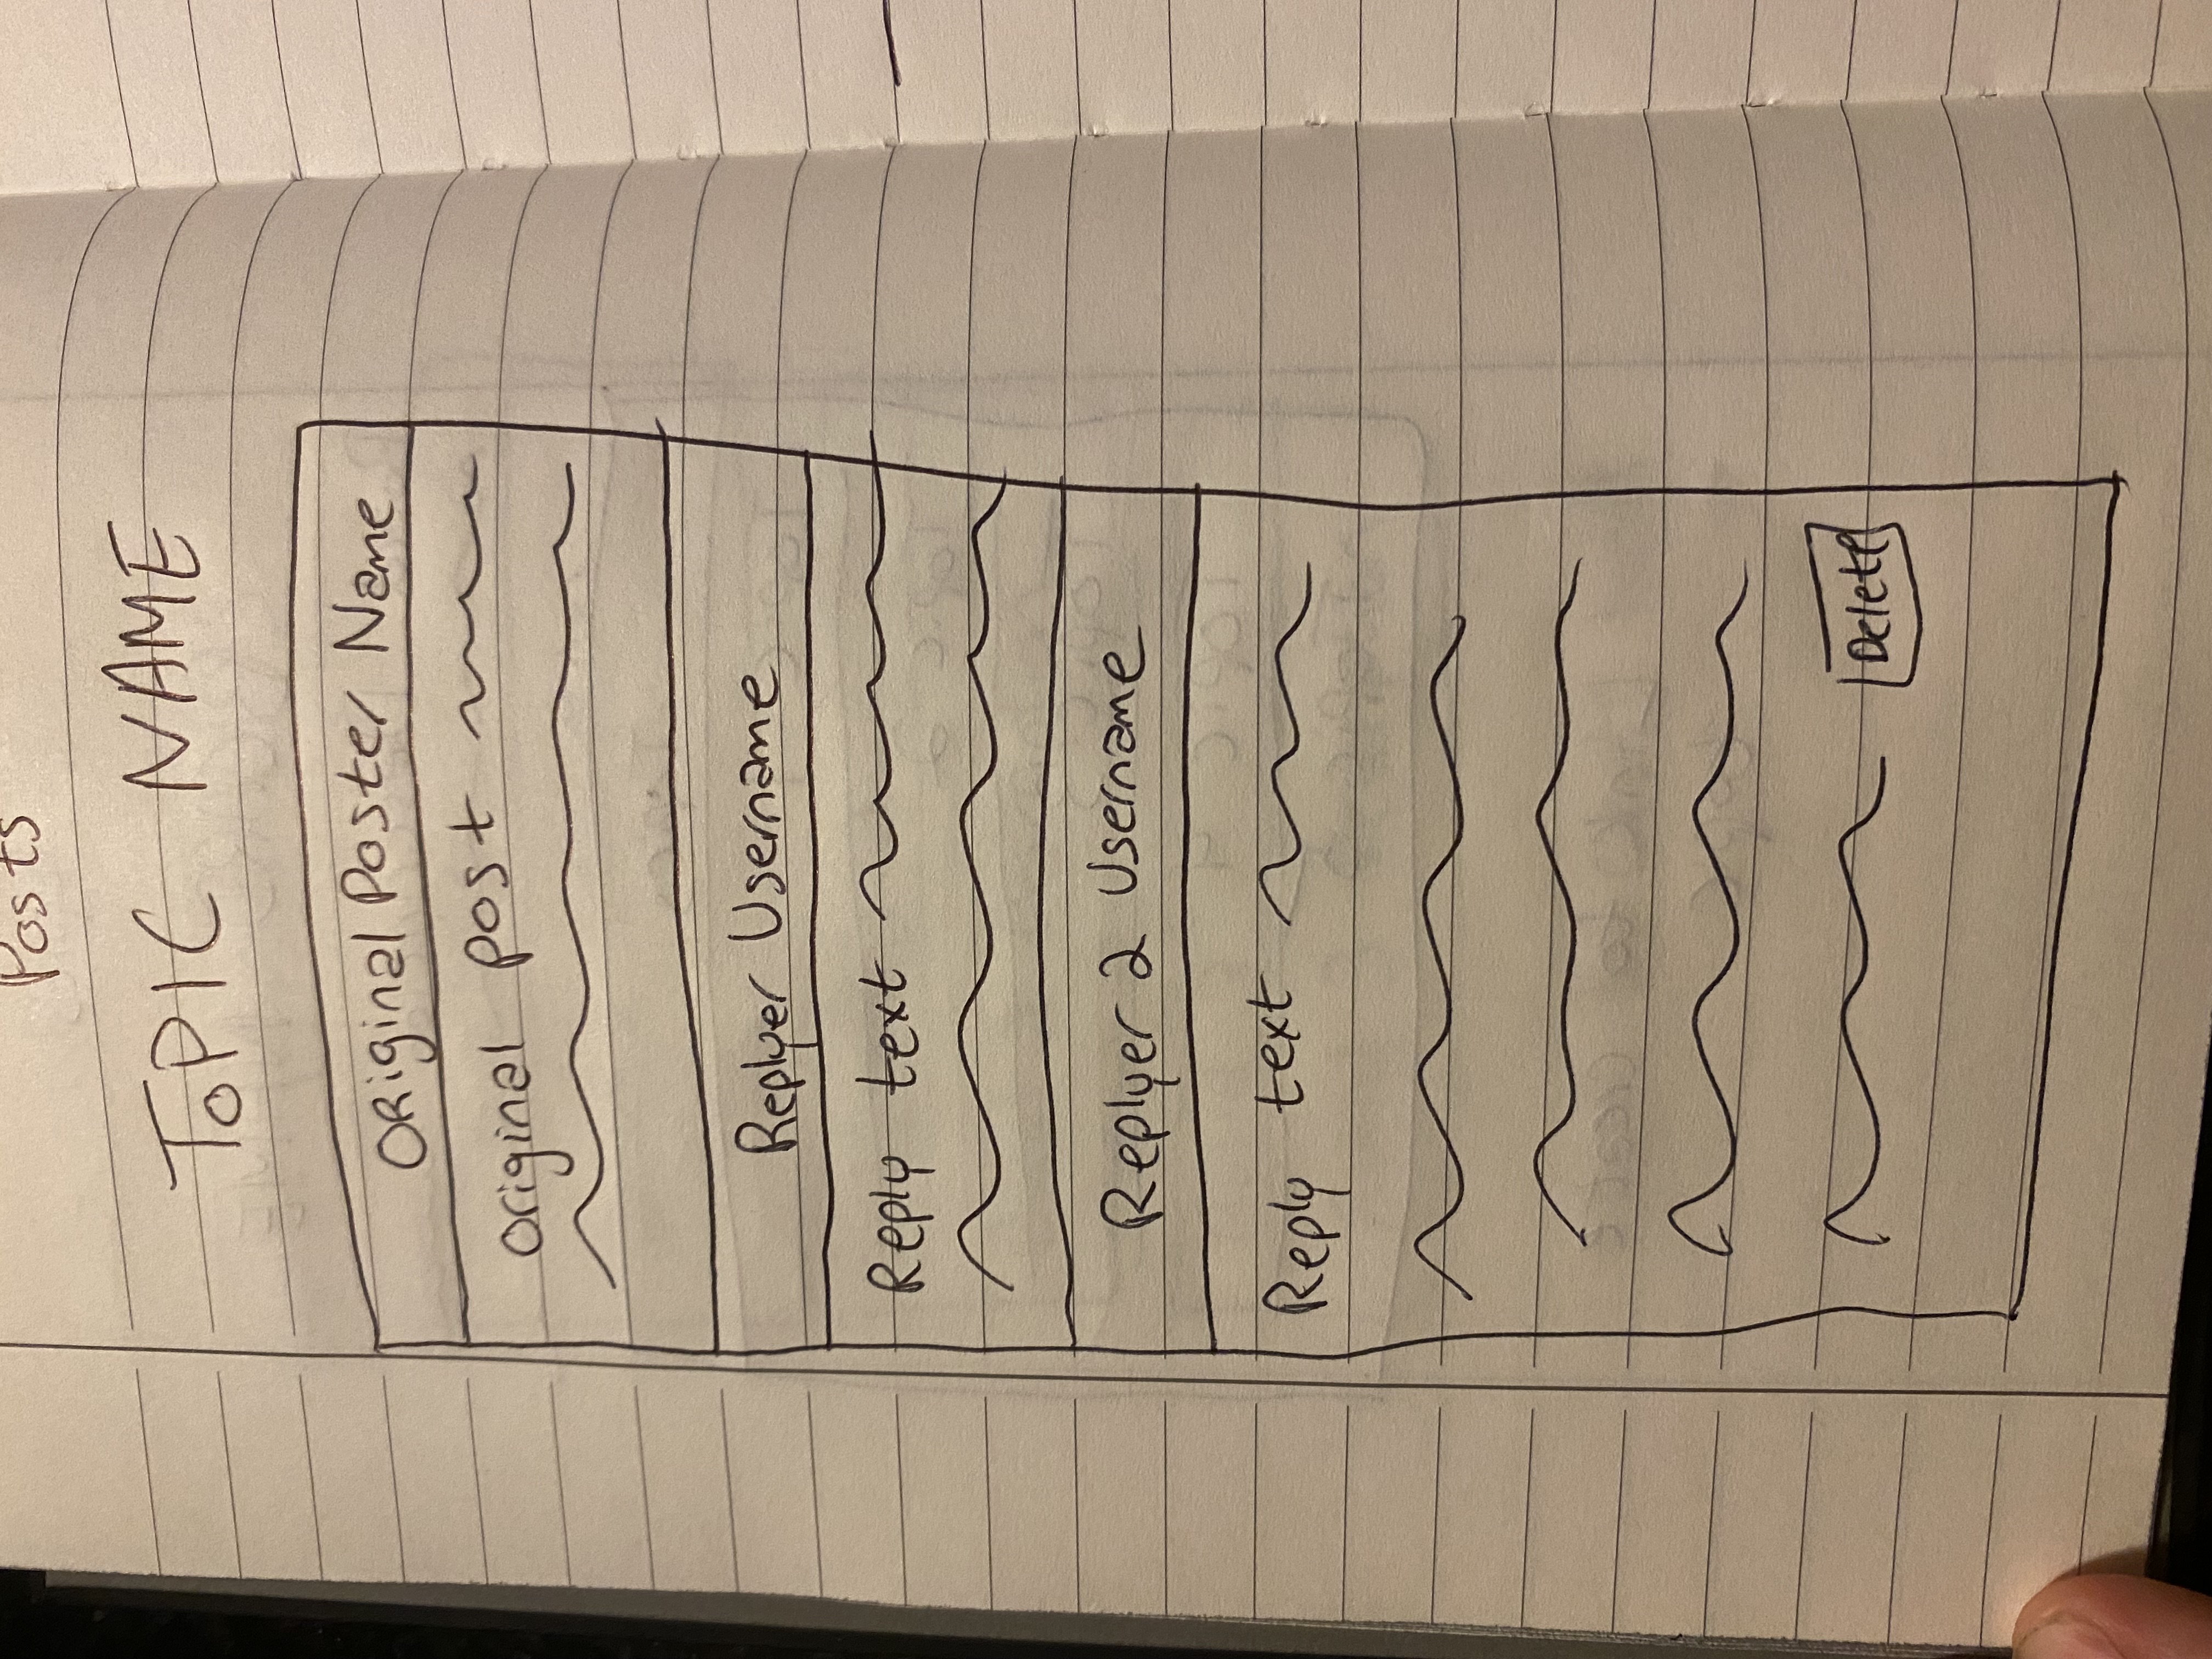 Posts
TOPIC NAME
Original Poster Name
Original post
Replyer Username
Reply text
Replyer 2 Username
Reply text
Delete